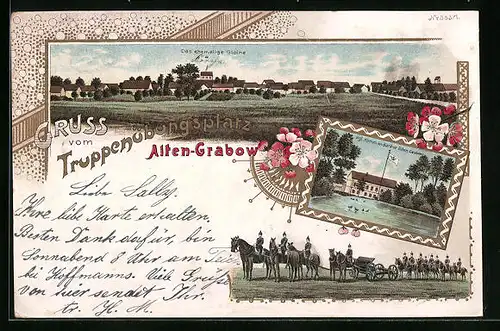 Das ehemalige Gloine
GRUSS
vom
Truppenübungsplatz
Alten-Grabow
Liebe Sally.
Ihre liebe Karte erhalten.
Besten Dank dafür, bin
Sonnabend 8 Uhr am
bei Hoffmanns. Viele Grüße
von hier sendet Ihr.
tr. H. M.